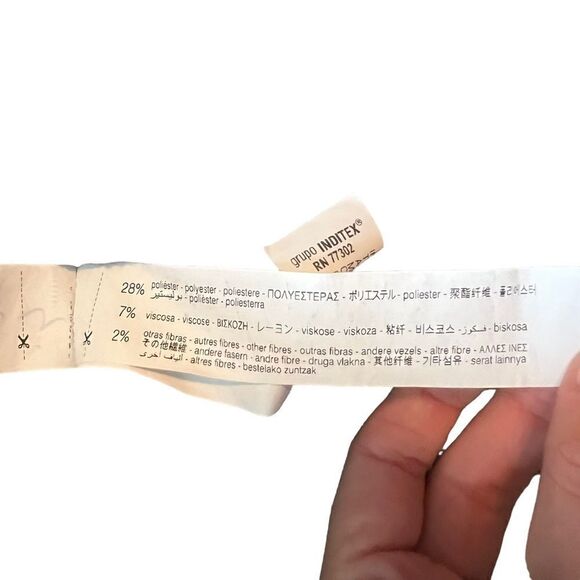 grupo INDITEX®
RN 77302
28% poliéster - polyester - poliestere - ΠΟΛΥΕΣΤΕΡΑΣ - ポリエステル - poliester - 聚酯纤维 - 폴리에스터
بوليستير - polièster - poliesterra
7% viscosa - viscose - ΒΙΣΚΟΖΗ - レーヨン - viskose - viskoza - 粘纤 - 비스코스 - فسكوز - biskosa
2% otras fibras - autres fibres - other fibres - outras fibras - andere vezels - altre fibre - ΑΛΛΕΣ ΙΝΕΣ
その他繊維 - andere fasern - andre fibre - druga vlakna - 其他纤维 - 기타섬유 - serat lainnya
ألياف أخرى - altres fibres - bestelako zuntzak